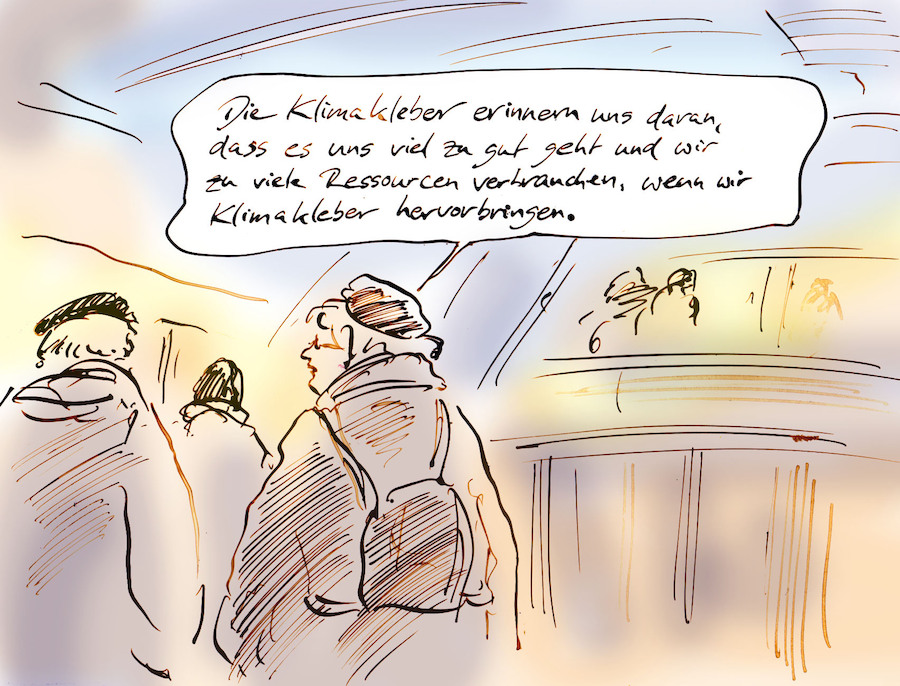 Die Klimakleber erinnern uns daran,
dass es uns viel zu gut geht und wir
zu viele Ressourcen verbrauchen, wenn wir
Klimakleber hervorbringen.